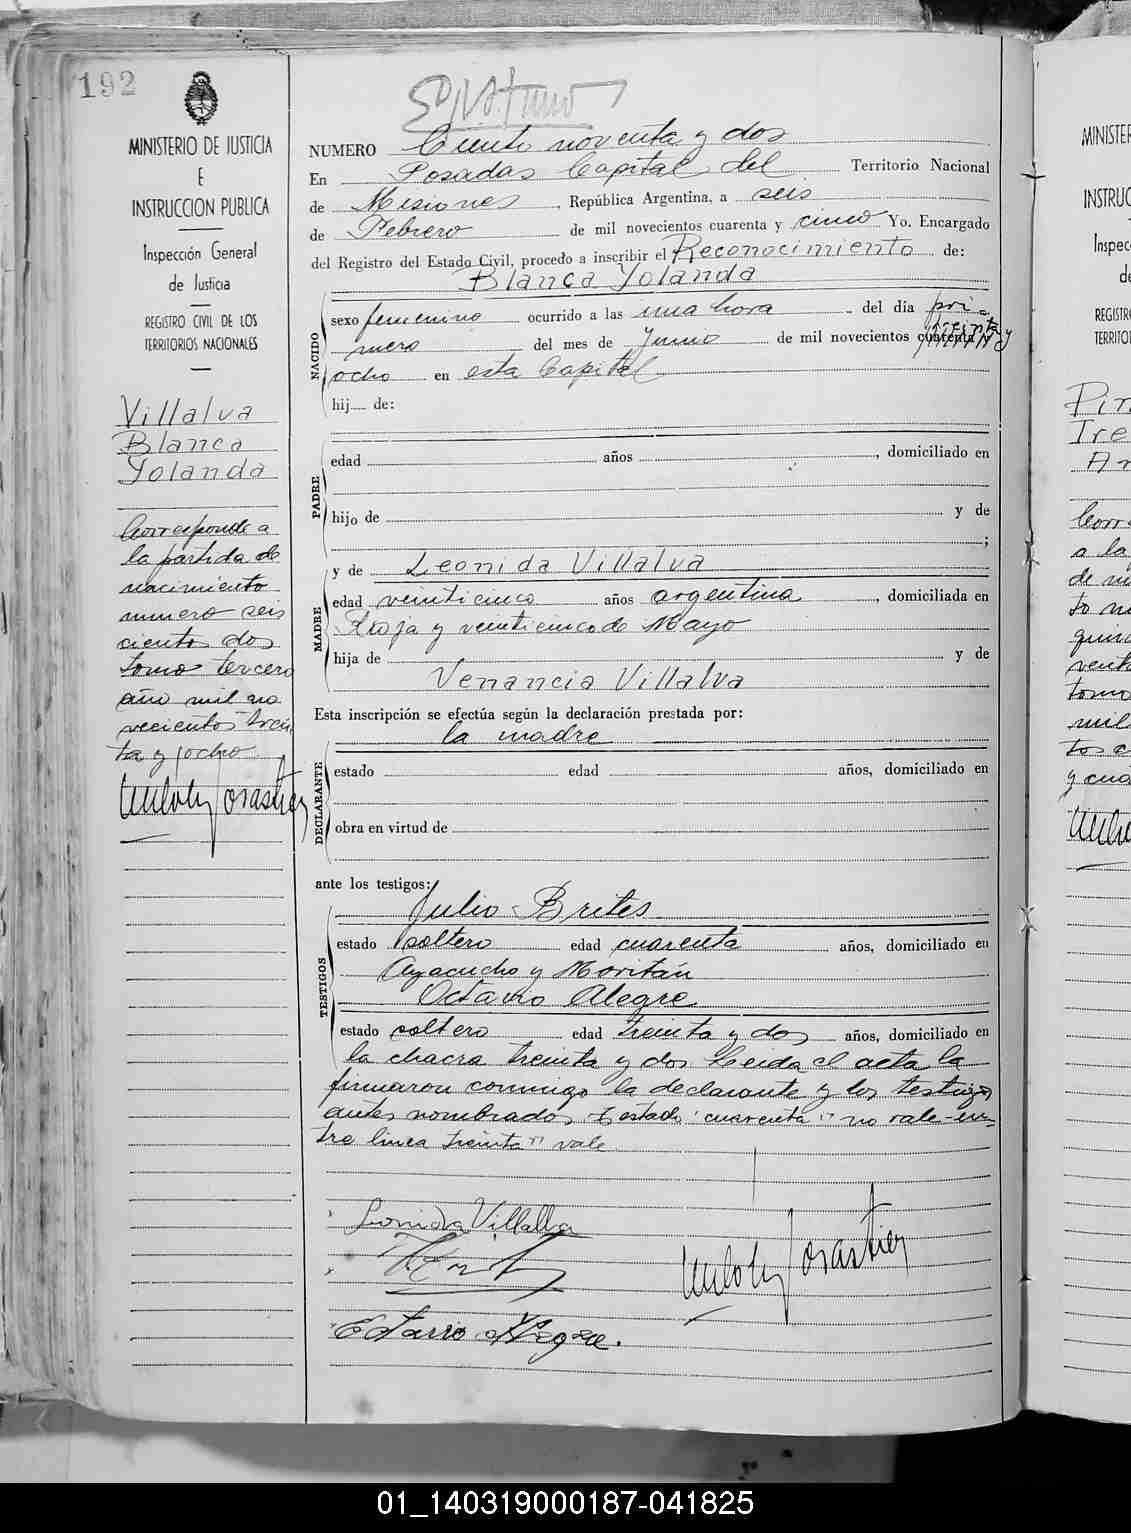 192
MINISTERIO DE JUSTICIA
E
INSTRUCCION PUBLICA
Inspección General
de Justicia
REGISTRO CIVIL DE LOS
TERRITORIOS NACIONALES
Villalva
Blanca
Yolanda
Corresponde a
la partida de
nacimiento
numero seis
cientos dos
tomo tercero
año mil no
vecientos trein
ta y ocho
NUMERO Ciento noventa y dos
En Posadas Capital del Territorio Nacional
de Misiones, República Argentina, a seis
de Febrero de mil novecientos cuarenta y cinco Yo. Encargado
del Registro del Estado Civil, procedo a inscribir el Reconocimiento de:
Blanca Yolanda
NACIDO
sexo femenino ocurrido a las una hora del día pri-
mero del mes de Junio de mil novecientos cuarenta y treinta y
ocho en esta Capital
hij de:
PADRE
edad años , domiciliado en
hijo de y de
;
y de Leonida Villalva
MADRE
edad veinticinco años argentina, domiciliada en
Rioja y veinticinco de Mayo
hija de y de
Venancia Villalva
Esta inscripción se efectúa según la declaración prestada por:
la madre
DECLARANTE
estado edad años, domiciliado en
obra en virtud de
ante los testigos:
Julio Brites
TESTIGOS
estado soltero edad cuarenta años, domiciliado en
Ayacucho y Moritán
Octavio Alegre
estado soltero edad treinta y dos años, domiciliado en
la chacra treinta y dos Leida el acta la
firmaron conmigo la declarante y los testigos
antes nombrados. Testado "cuarenta" no vale-en-
tre linea treinta" vale
Leonida Villalba
Octavio Alegre.
MINISTER
INSTRUC
Inspec
de
REGISTR
TERRITO
Corr
a la
de na
to n
quin
vent
tomo
mil
tos c
y cua
01_140319000187-041825